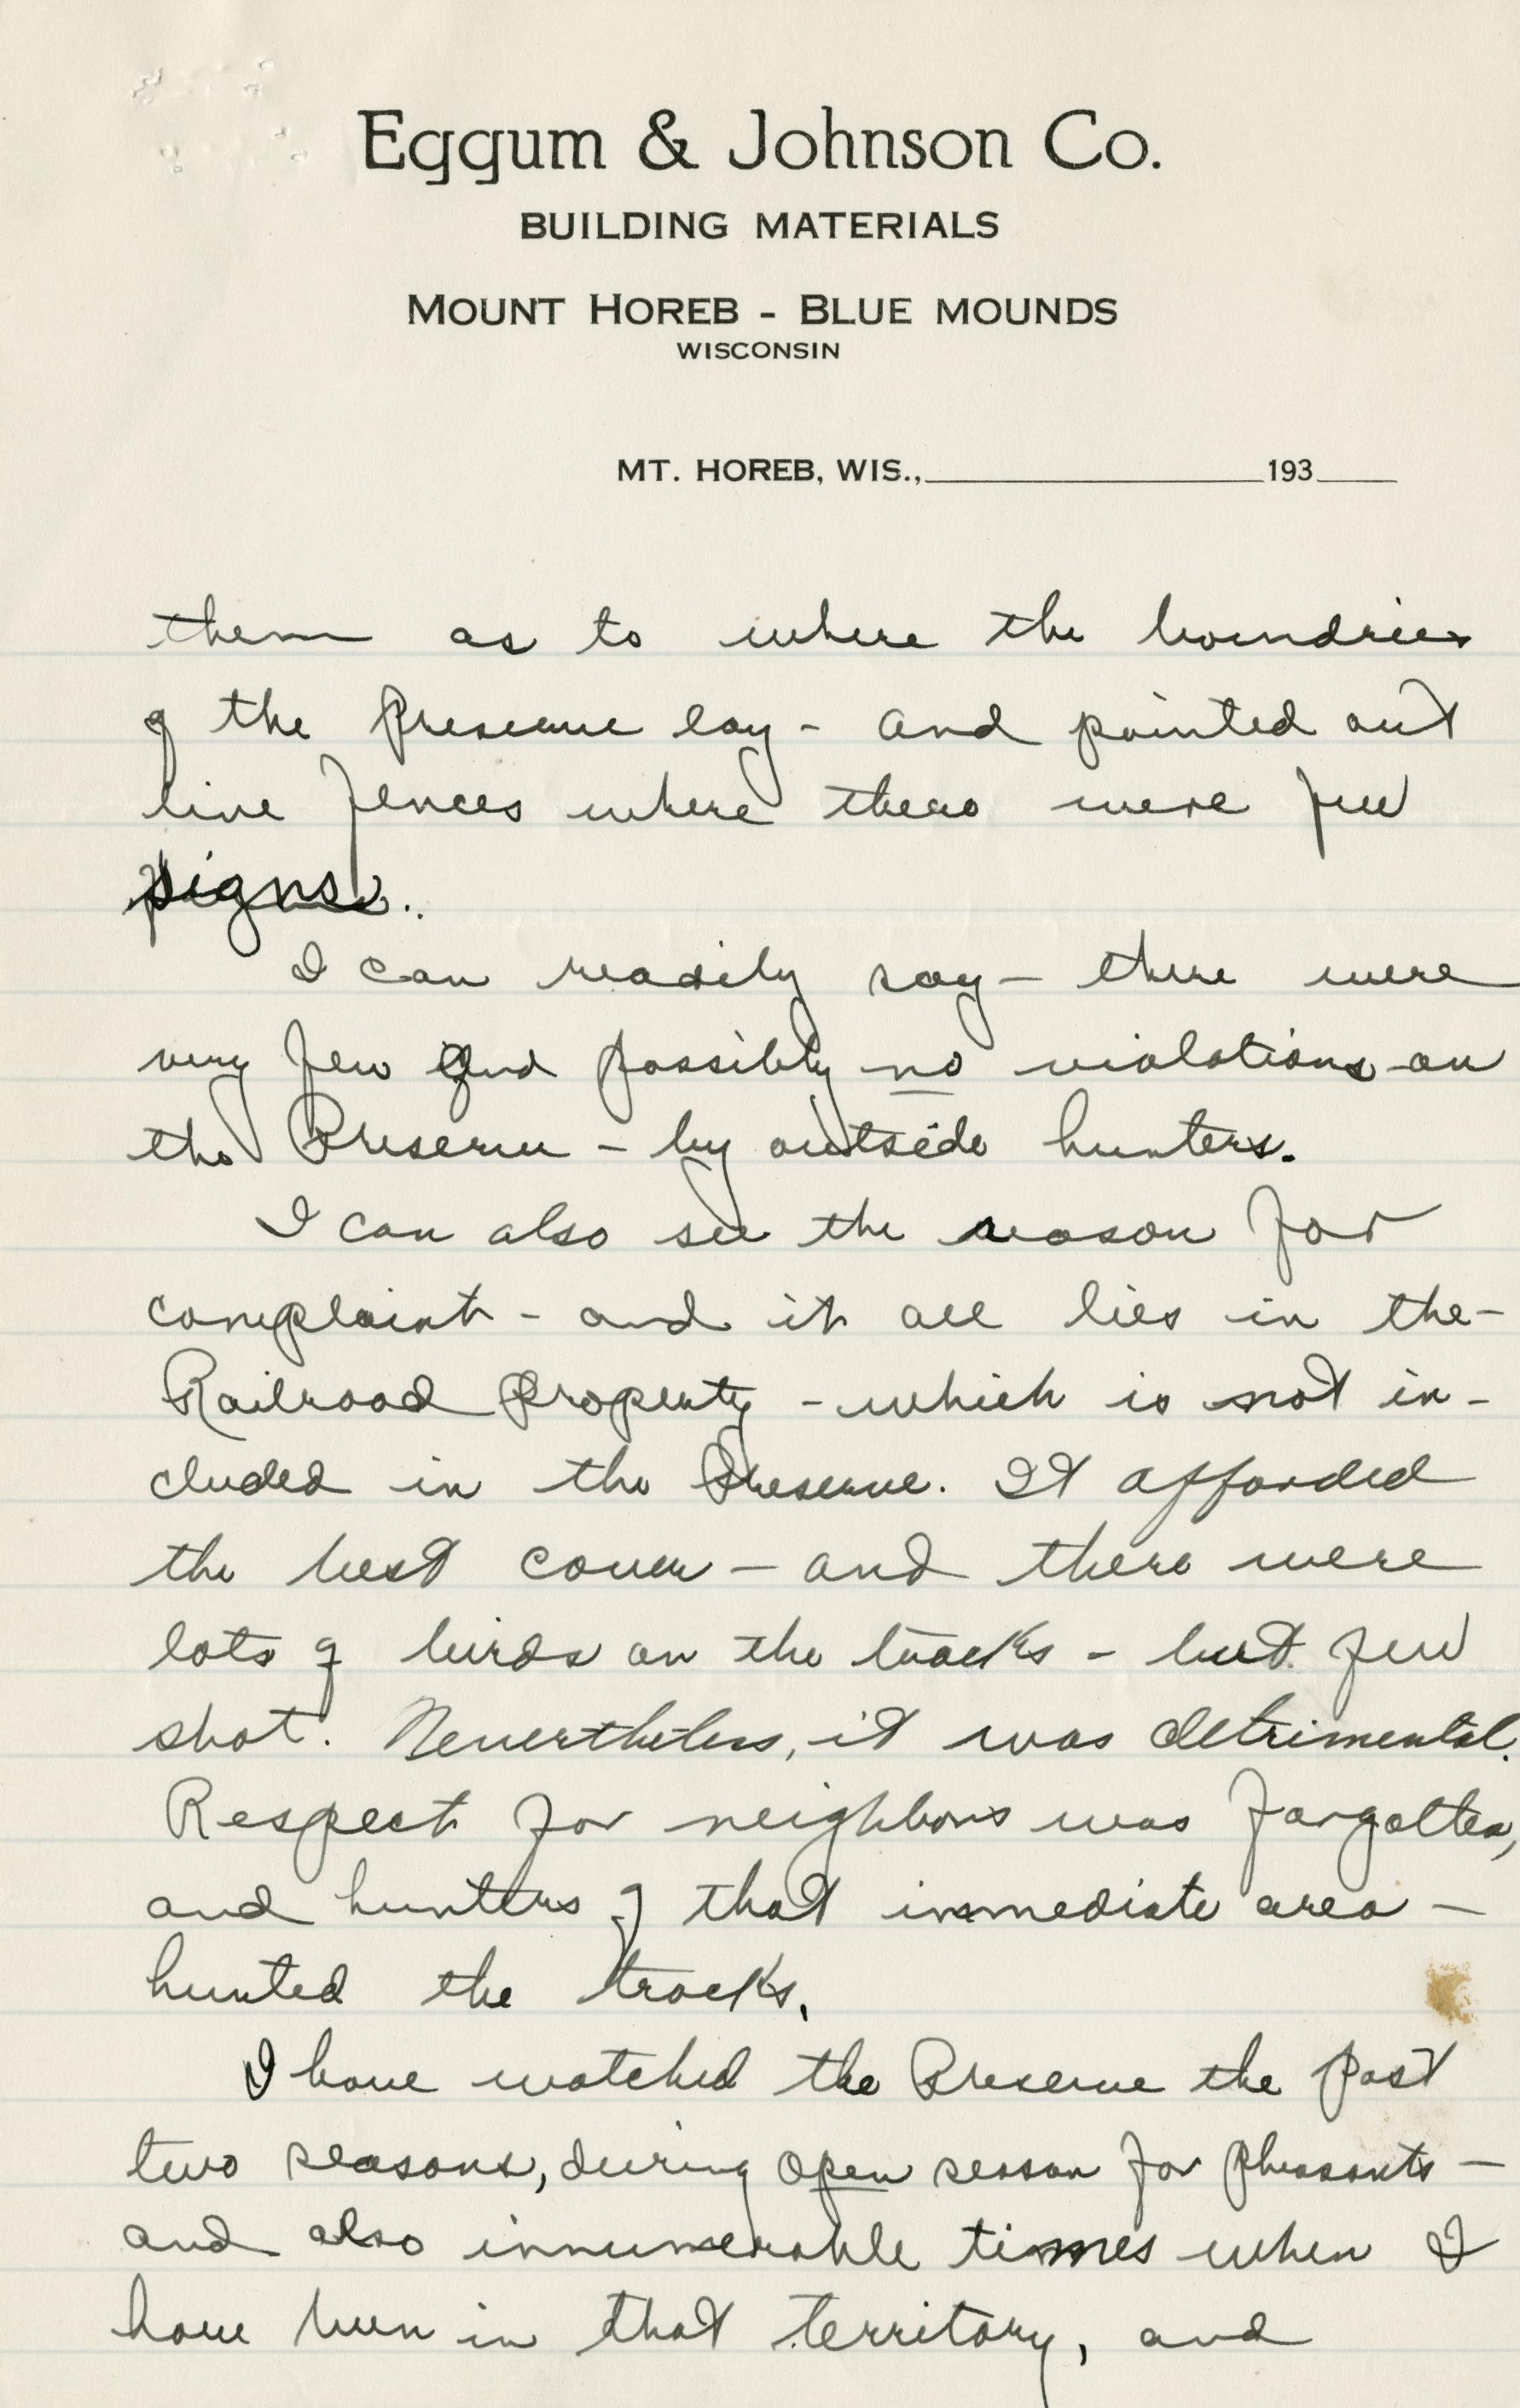 Eggum & Johnson Co.
BUILDING MATERIALS
MOUNT HOREB - BLUE MOUNDS
WISCONSIN
MT. HOREB, WIS.,____________193____
them as to where the boundries
of the Preserve lay - and pointed out
line fences where there were few
signs.
I can readily say - there were
very few and possibly no violations on
the Preserve - by outside hunters.
I can also see the reason for
complaint - and it all lies in the -
Railroad Property - which is not in-
cluded in the Preserve. It afforded
the best cover - and there were
lots of birds on the tracks - but few
shot. Nevertheless, it was detrimental.
Respect for neighbors was forgotten,
and hunters of that immediate area -
hunted the tracks.
I have watched the Preserve the past
two seasons, during open season for Pheasants -
and also innumerable times when I
have been in that territory, and